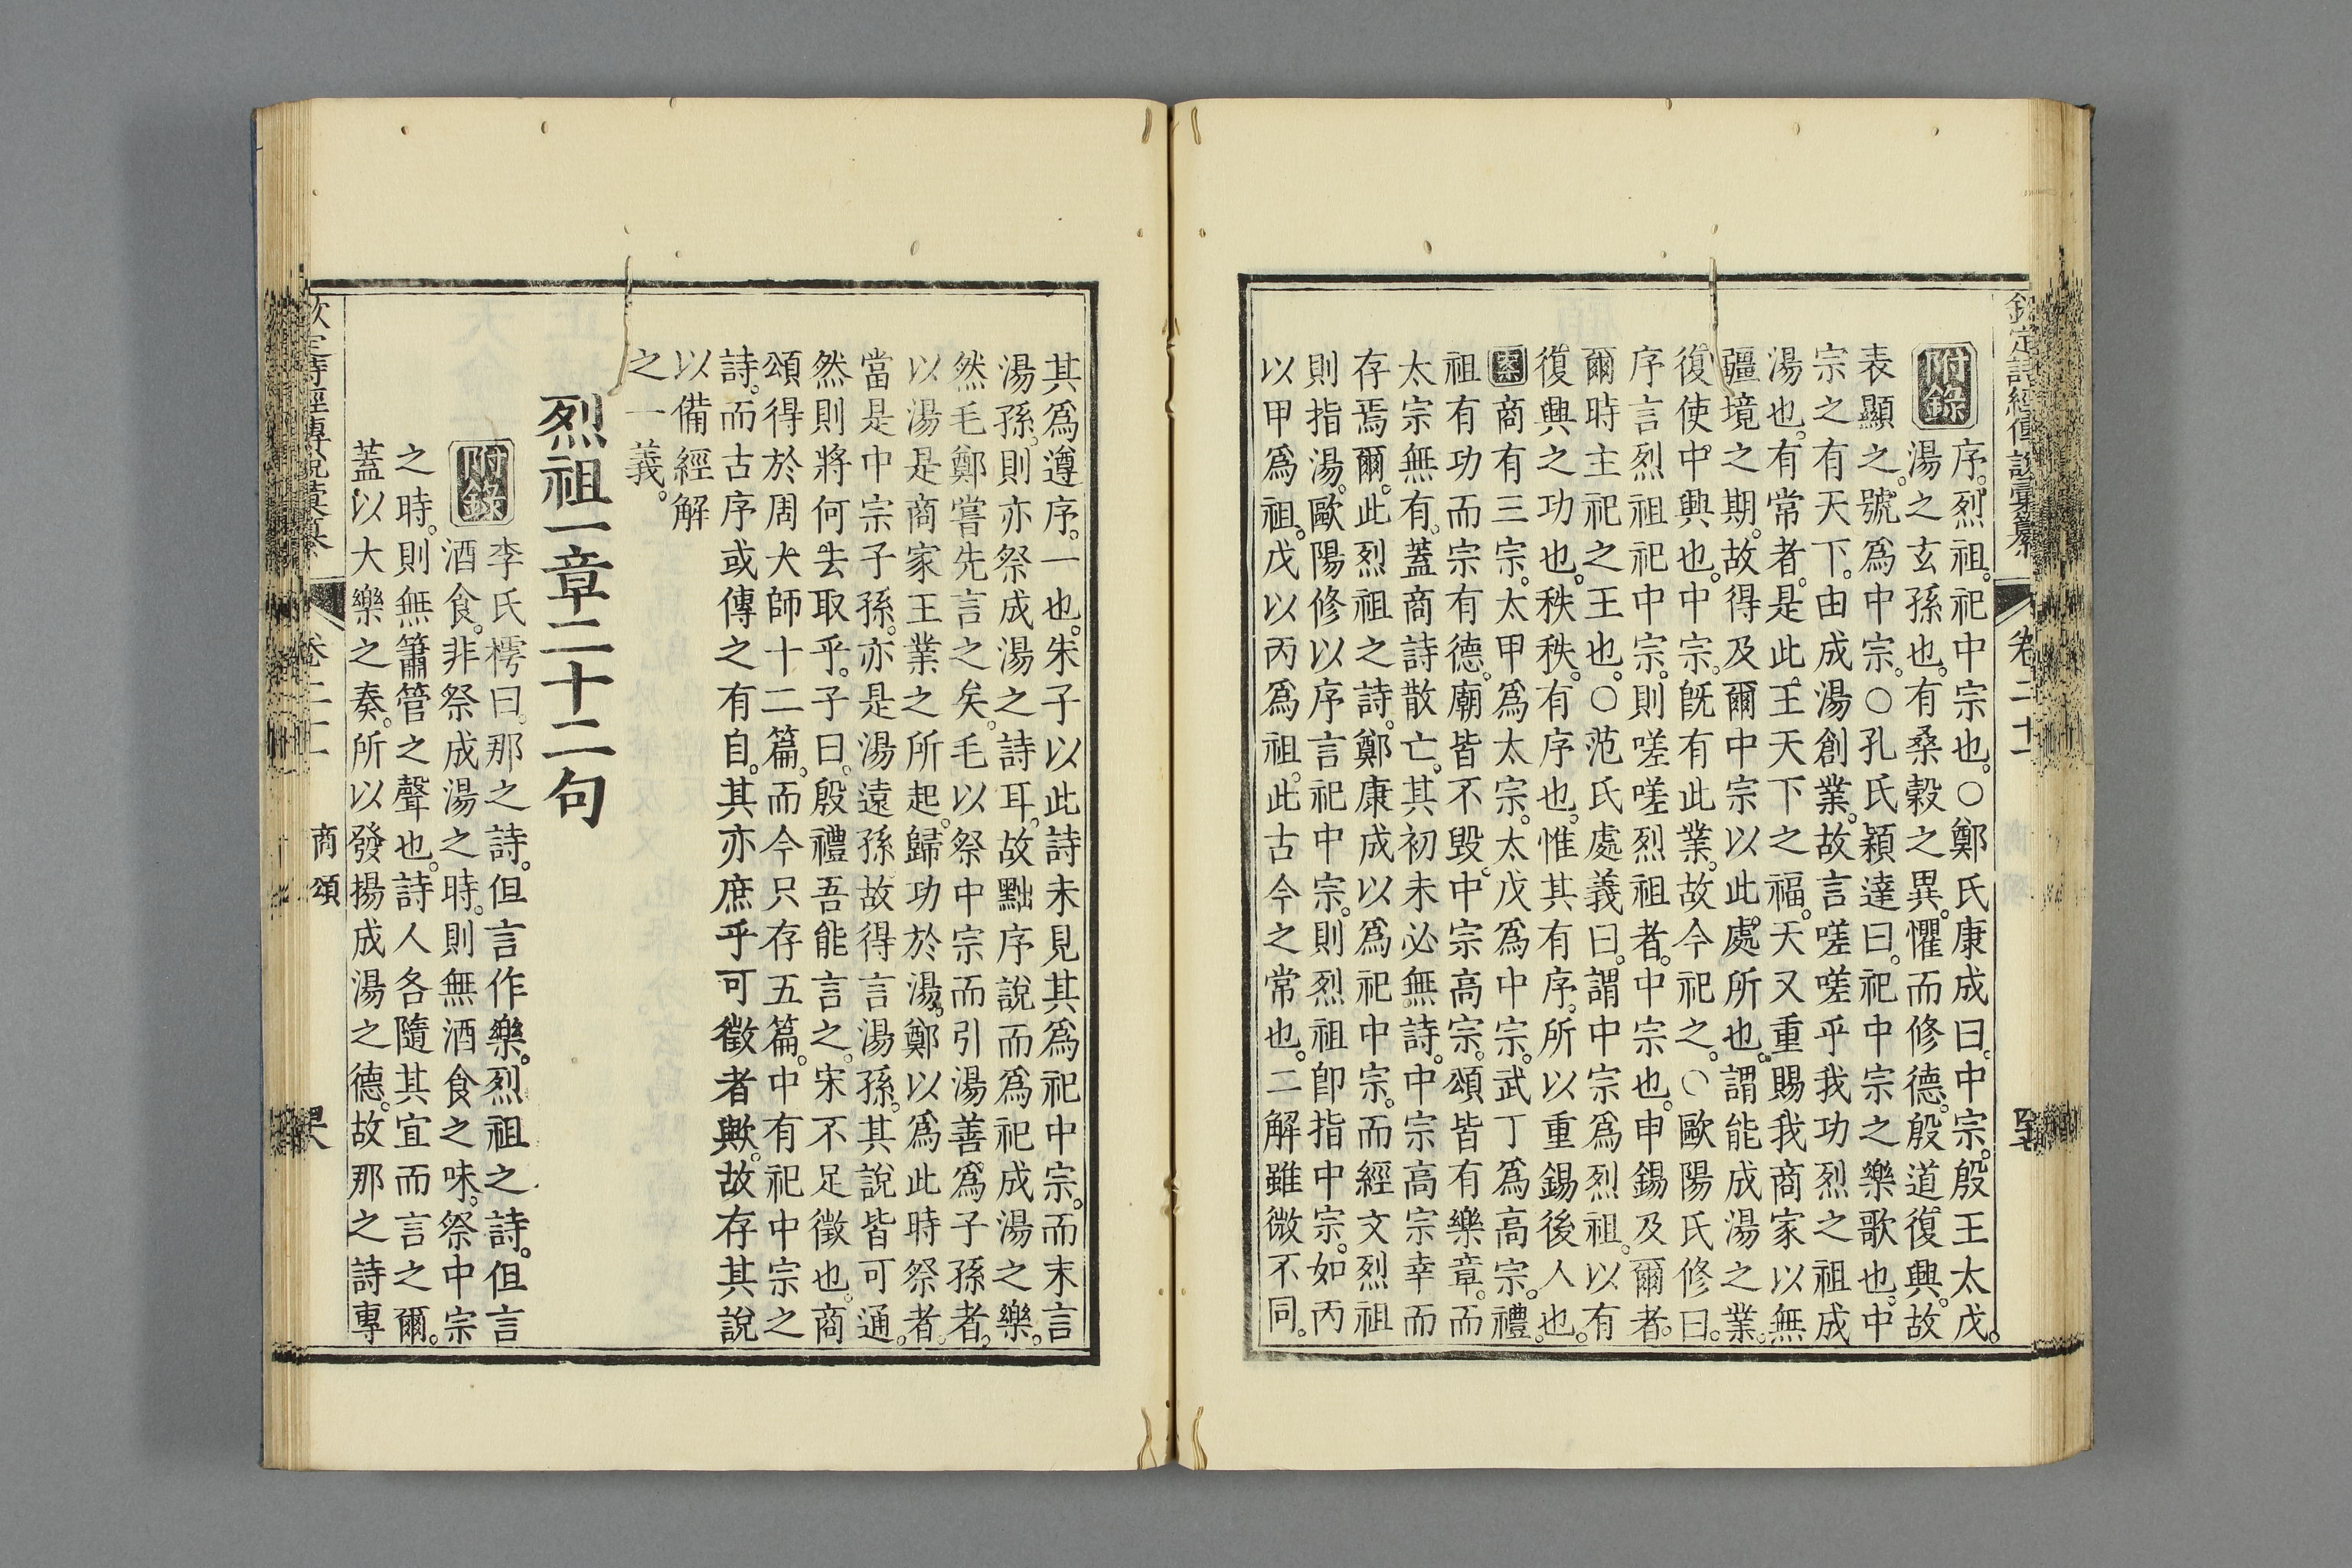 欽定詩經傳說彙纂 卷二十一
附錄 序。烈祖。祀中宗也。○鄭氏康成曰。中宗。殷王太戊。
湯之玄孫也。有桑穀之異。懼而修德。殷道復興。故
表顯之。號爲中宗。○孔氏穎達曰。祀中宗之樂歌也。中
宗之有天下。由成湯創業。故言嗟嗟乎我功烈之祖成
湯也。有常者。是此王天下之福。天又重賜我商家以無
疆境之期。故得及爾中宗以此處所也。謂能成湯之業。
復使中興也。中宗。旣有此業。故今祀之。○歐陽氏修曰。
序言烈祖祀中宗。則嗟嗟烈祖者。中宗也。申錫及爾者。
爾時主祀之王也。○范氏處義曰。謂中宗爲烈祖。以有
復興之功也。秩秩。有序也。惟其有序。所以重錫後人也。
案 商有三宗。太甲爲太宗。太戊爲中宗。武丁爲高宗。禮。
祖有功而宗有德。廟皆不毀。中宗高宗。頌皆有樂章。而
太宗無有。蓋商詩散亡。其初未必無詩。中宗高宗幸而
存焉爾。此烈祖之詩。鄭康成以爲祀中宗。而經文烈祖
則指湯。歐陽修以序言祀中宗。則烈祖卽指中宗。如丙
以甲爲祖。戊以丙爲祖。此古今之常也。二解雖微不同。
其爲遵序。一也。朱子以此詩未見其爲祀中宗。而末言
湯孫。則亦祭成湯之詩耳。故黜序說而爲祀成湯之樂。
然毛鄭嘗先言之矣。毛以祭中宗而引湯善爲子孫者。
以湯是商家王業之所起。歸功於湯。鄭以爲此時祭者。
當是中宗子孫。亦是湯遠孫。故得言湯孫。其說皆可通。
然則將何去取乎。子曰。殷禮吾能言之。宋不足徵也。商
頌得於周大師十二篇。而今只存五篇。中有祀中宗之
詩。而古序或傳之有自。其亦庶乎可徵者歟。故存其說
以備經解
之一義。
烈祖一章二十二句
附錄 李氏樗曰。那之詩。但言作樂。烈祖之詩。但言
酒食。非祭成湯之時。則無酒食之味。祭中宗
之時。則無簫管之聲也。詩人各隨其宜而言之爾。
蓋以大樂之奏。所以發揚成湯之德。故那之詩專
欽定詩經傳說彙纂 卷二十一 商頌